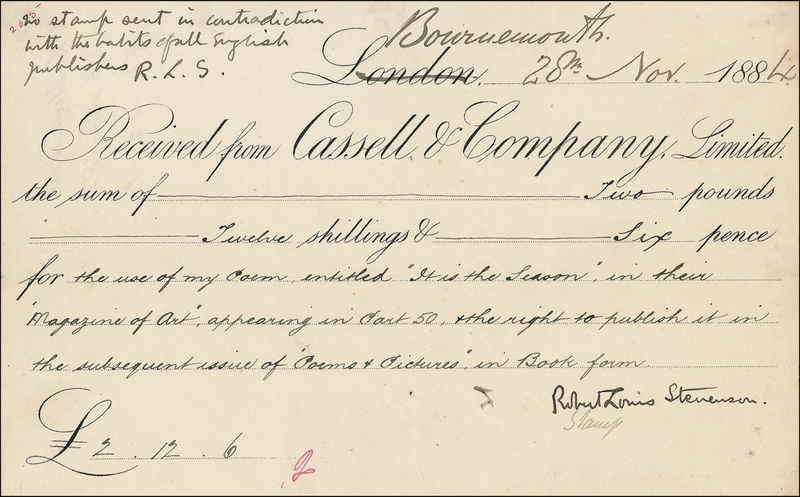 2635
No stamp sent in contradiction
with the habits of all English
publishers R. L. S.
Bournemouth.
London. 28th Nov. 1884.
Received from Cassell & Company, Limited.
the sum of Two pounds
Twelve shillings & Six pence
for the use of my Poem, entitled "It is the Season", in their
"Magazine of Art", appearing in Part 50, & the right to publish it in
the subsequent issue of "Poems & Pictures", in Book form.
Robert Louis Stevenson.
Stamp
£ 2 . 12 . 6